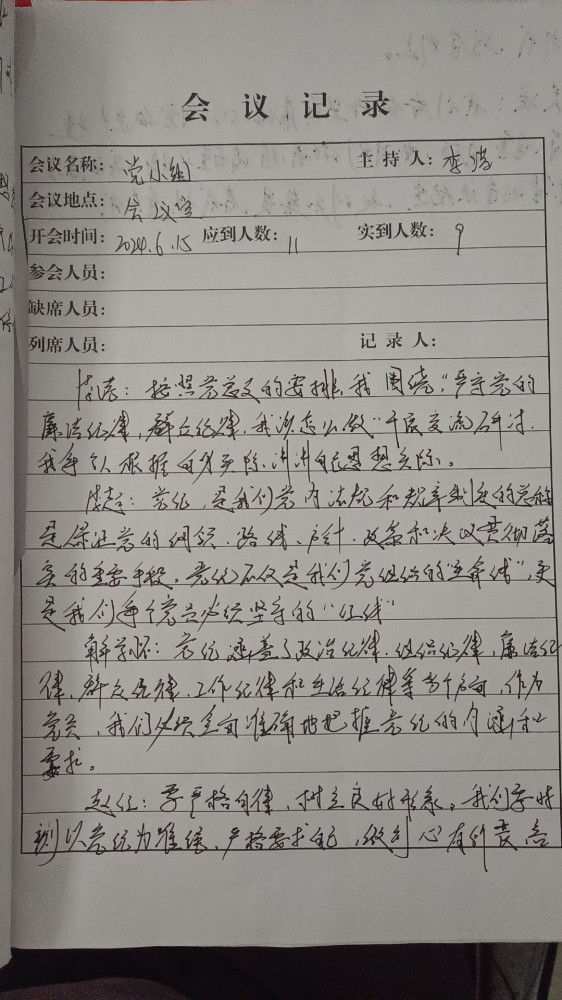 会议记录
会议名称：党小组 主持人：李涛
会议地点：会议室
开会时间：2024.6.15 应到人数：11 实到人数：9
参会人员：
缺席人员：
列席人员： 记录人：
李涛：按照党总支的安排，我围绕“严守党的
廉洁纪律，群众纪律，我该怎么做”开展交流研讨，
我每个人根据自身实际，讲讲自己思想实际。
党纪，是我们党内法规和规章制度的总称
是保证党的纲领、路线、方针、政策和决议贯彻落
实的重要手段，党纪不仅是我们党组织的“生命线”，更
是我们每个党员必须坚守的“红线”
解学怀：党纪涵盖了政治纪律，组织纪律，廉洁纪
律，群众纪律，工作纪律和生活纪律等多个方面，作为
党员，我们必须全面准确地把握党纪的内涵和
要求。
赵红：要严格自律，树立良好形象。我们要时
刻以党纪为准绳，严格要求自己，做到心有所畏、言